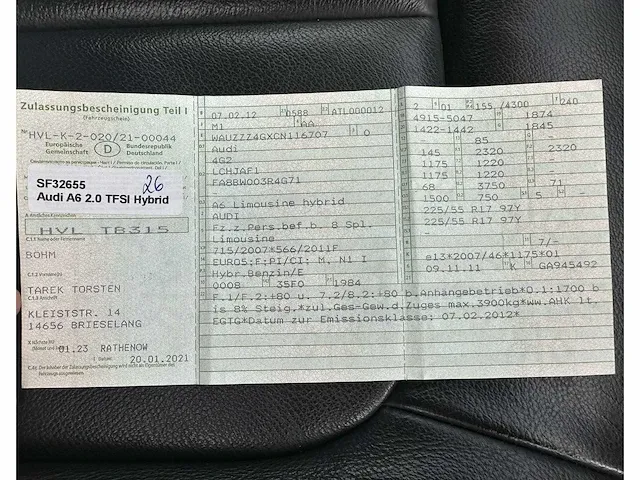 Zulassungsbescheinigung Teil I
(Fahrzeugschein)
Nr. HVL-K-2-020/21-00044
Europäische Gemeinschaft
D
Bundesrepublik Deutschland
SF32655
26
Audi A6 2.0 TFSI Hybrid
HVL TB315
C.1.1 Name oder Firmenname
BÖHM
C.1.2 Vorname(n)
TAREK TORSTEN
C.1.3 Anschrift
KLEISTSTR. 14
14656 BRIESELANG
01.23 RATHENOW
20.01.2021
C.4c Der Inhaber der Zulassungsbescheinigung wird nicht als Eigentümer des Fahrzeugs ausgewiesen.
07.02.12 0588 ATL000012
M1 AA
WAUZZZ4GXCN116707 0
Audi
4G2
LCHJAF1
FA8BW003R4G71
A6 Limousine hybrid
AUDI
Fz.z.Pers.bef.b. 8 Spl.
Limousine
715/2007*566/2011F
EURO5;F;PI/CI; M, N1 I
Hybr.Benzin/E
0008 35F0 1984
F.1/F.2:+80 u. 7.2/8.2:+80 b.Anhangebetrieb*O.1:1700 b
is 8% Steig.*zul.Ges-Gew.d.Zuges max.3900kg*ww.AHK lt.
EGTG*Datum zur Emissionsklasse: 07.02.2012*
2 01 155 /4300 240
4915-5047 1874
1422-1442 1845
85
145 2320 2320
1175 1220
1175 1220
68 3750 71
1500 750 5
225/55 R17 97Y
225/55 R17 97Y
-
7/-
e13*2007/46*1175*01
09.11.11 K GA945492